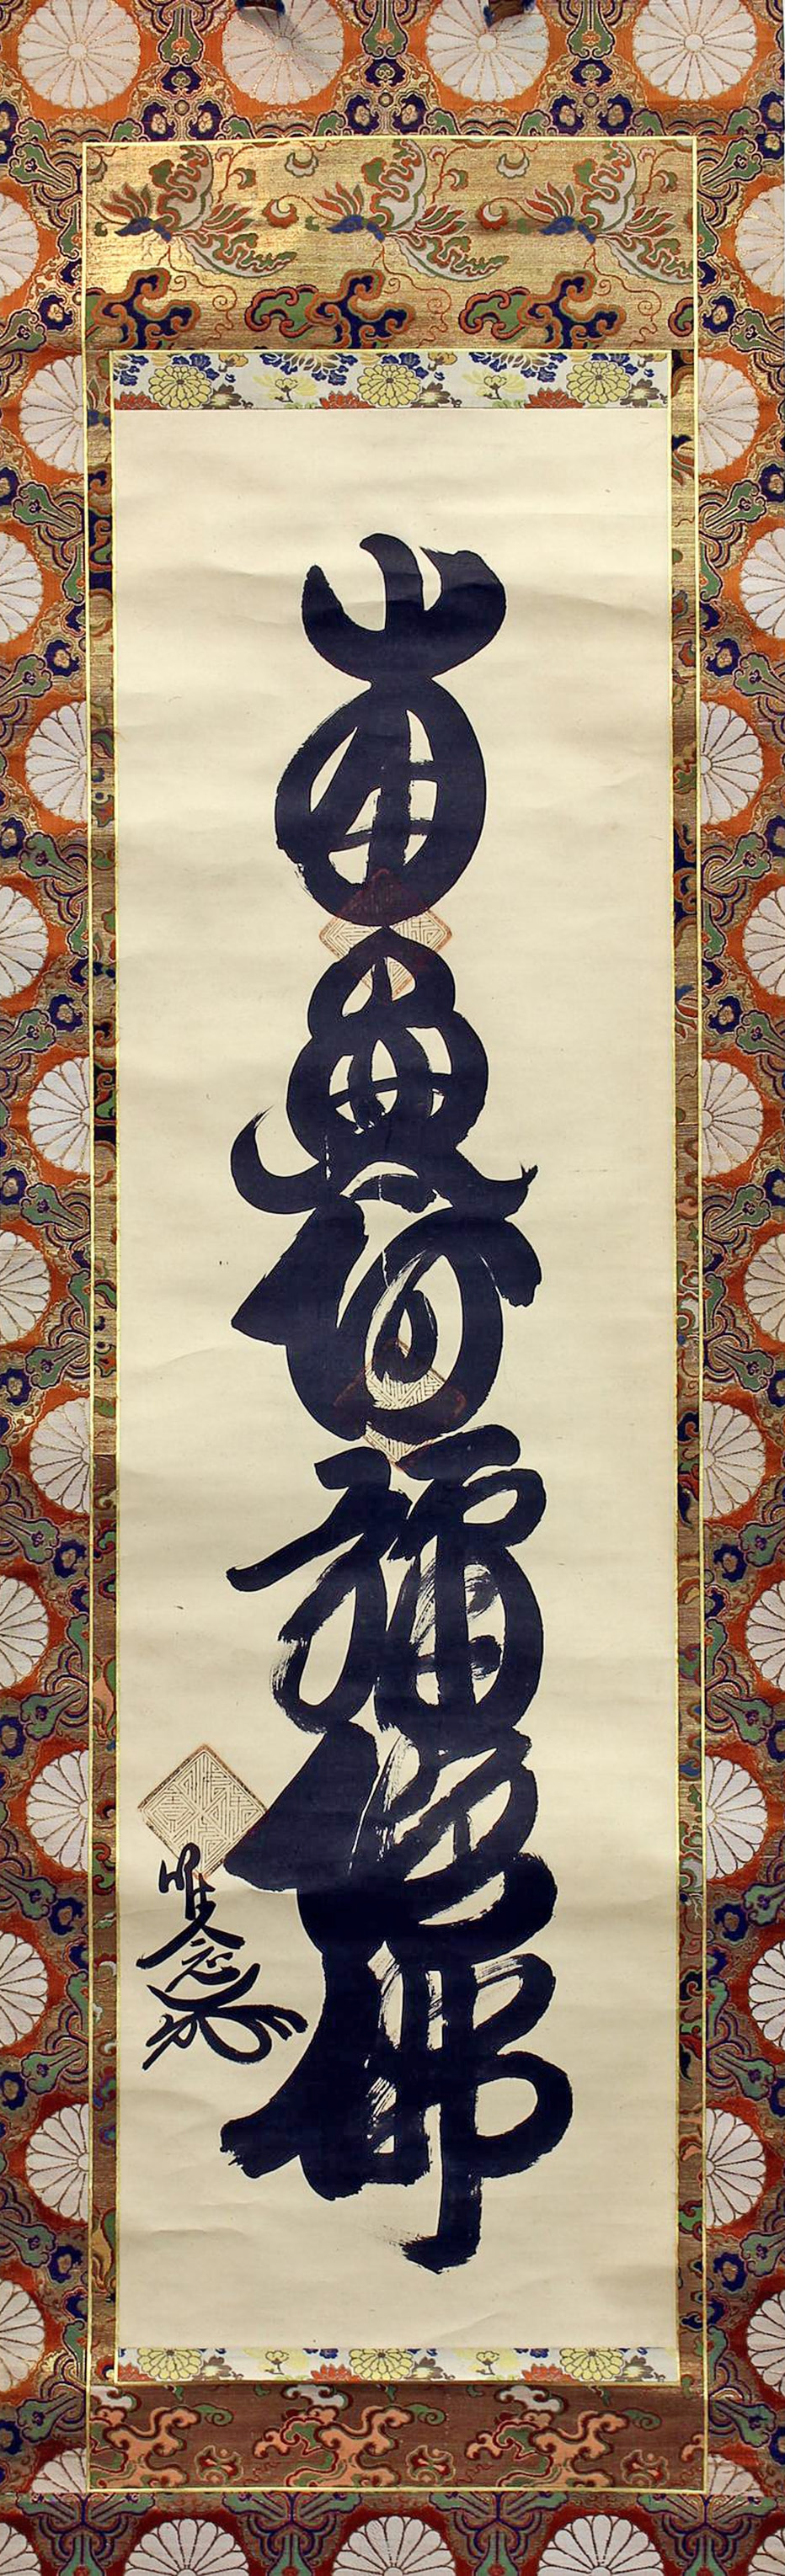 南無阿弥陀佛
唯念